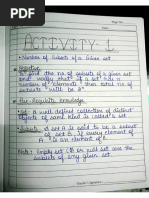 Page No.
Date
ACTIVITY-1
• Number of Subsets of a Given set
• Objective
To find the no. of subsets of a given set
and verify that if a set has n
number of elements then total no of
subsets will be
• Pre Requisite knowledge
• Set: A well defined collection of distinct
objects of same kind is called a set.
• Subsets: A set A is said to be a subset
of set B if every element of
A is an element of B.
Note: Empty set (Φ) or null set are the
subsets of any given set.
Teacher's Signature